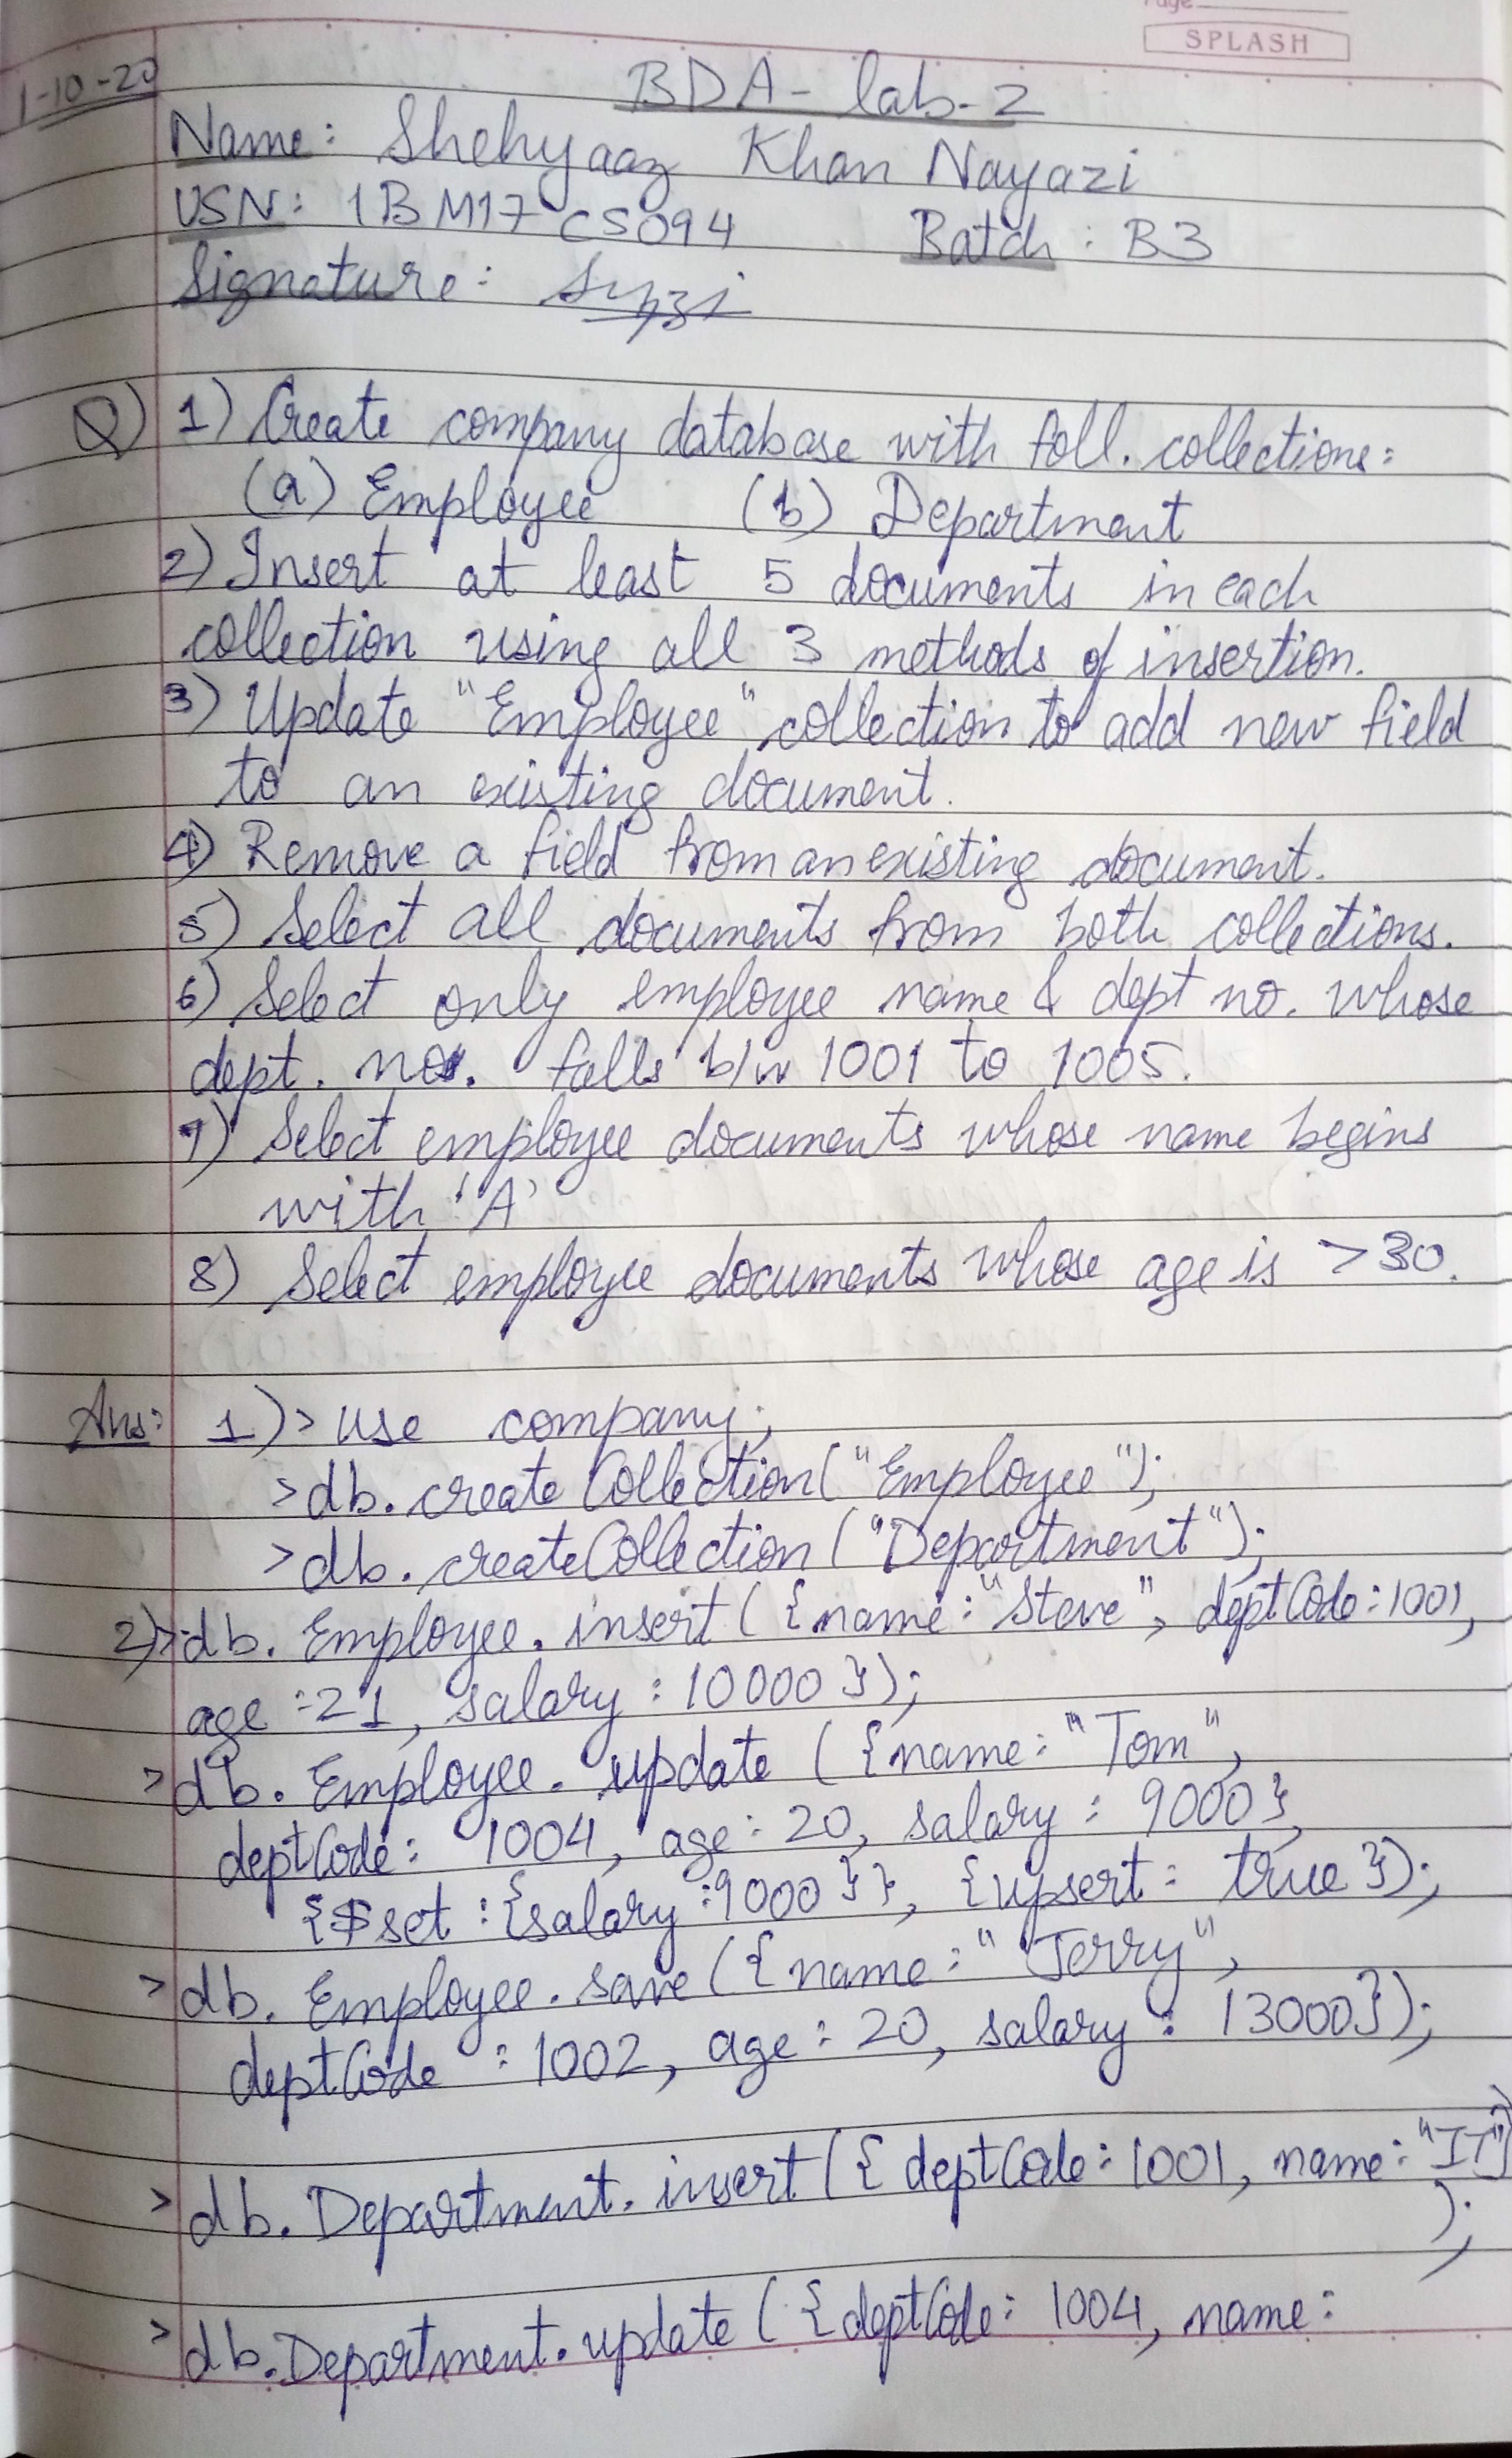 Page
SPLASH
1-10-20
BDA - lab-2
Name: Shehyaaz Khan Nayazi
USN: 1BM17CS094 Batch: B3
Signature:
Q) 1) Create company database with foll. collections:
(a) Employee (b) Department
2) Insert at least 5 documents in each
collection using all 3 methods of insertion.
3) Update "Employee" collection to add new field
to an existing document.
4) Remove a field from an existing document.
5) Select all documents from both collections.
6) Select only employee name & dept no. whose
dept. no. falls b/w 1001 to 1005.
7) Select employee documents whose name begins
with 'A'
8) Select employee documents whose age is >30.
Ans: 1) > use company;
> db.createCollection("Employee");
> db.createCollection("Department");
2) > db.Employee.insert({name:"Steve", deptCode:1001,
age:21, salary:10000});
> db.Employee.update({name:"Tom",
deptCode: 1004, age:20, salary: 9000},
{$set:{salary:9000}}, {upsert: true});
> db.Employee.save({name:"Jerry",
deptCode:1002, age:20, salary: 13000});
> db.Department.insert({deptCode:1001, name:"IT"}
);
> db.Department.update({deptCode: 1004, name: